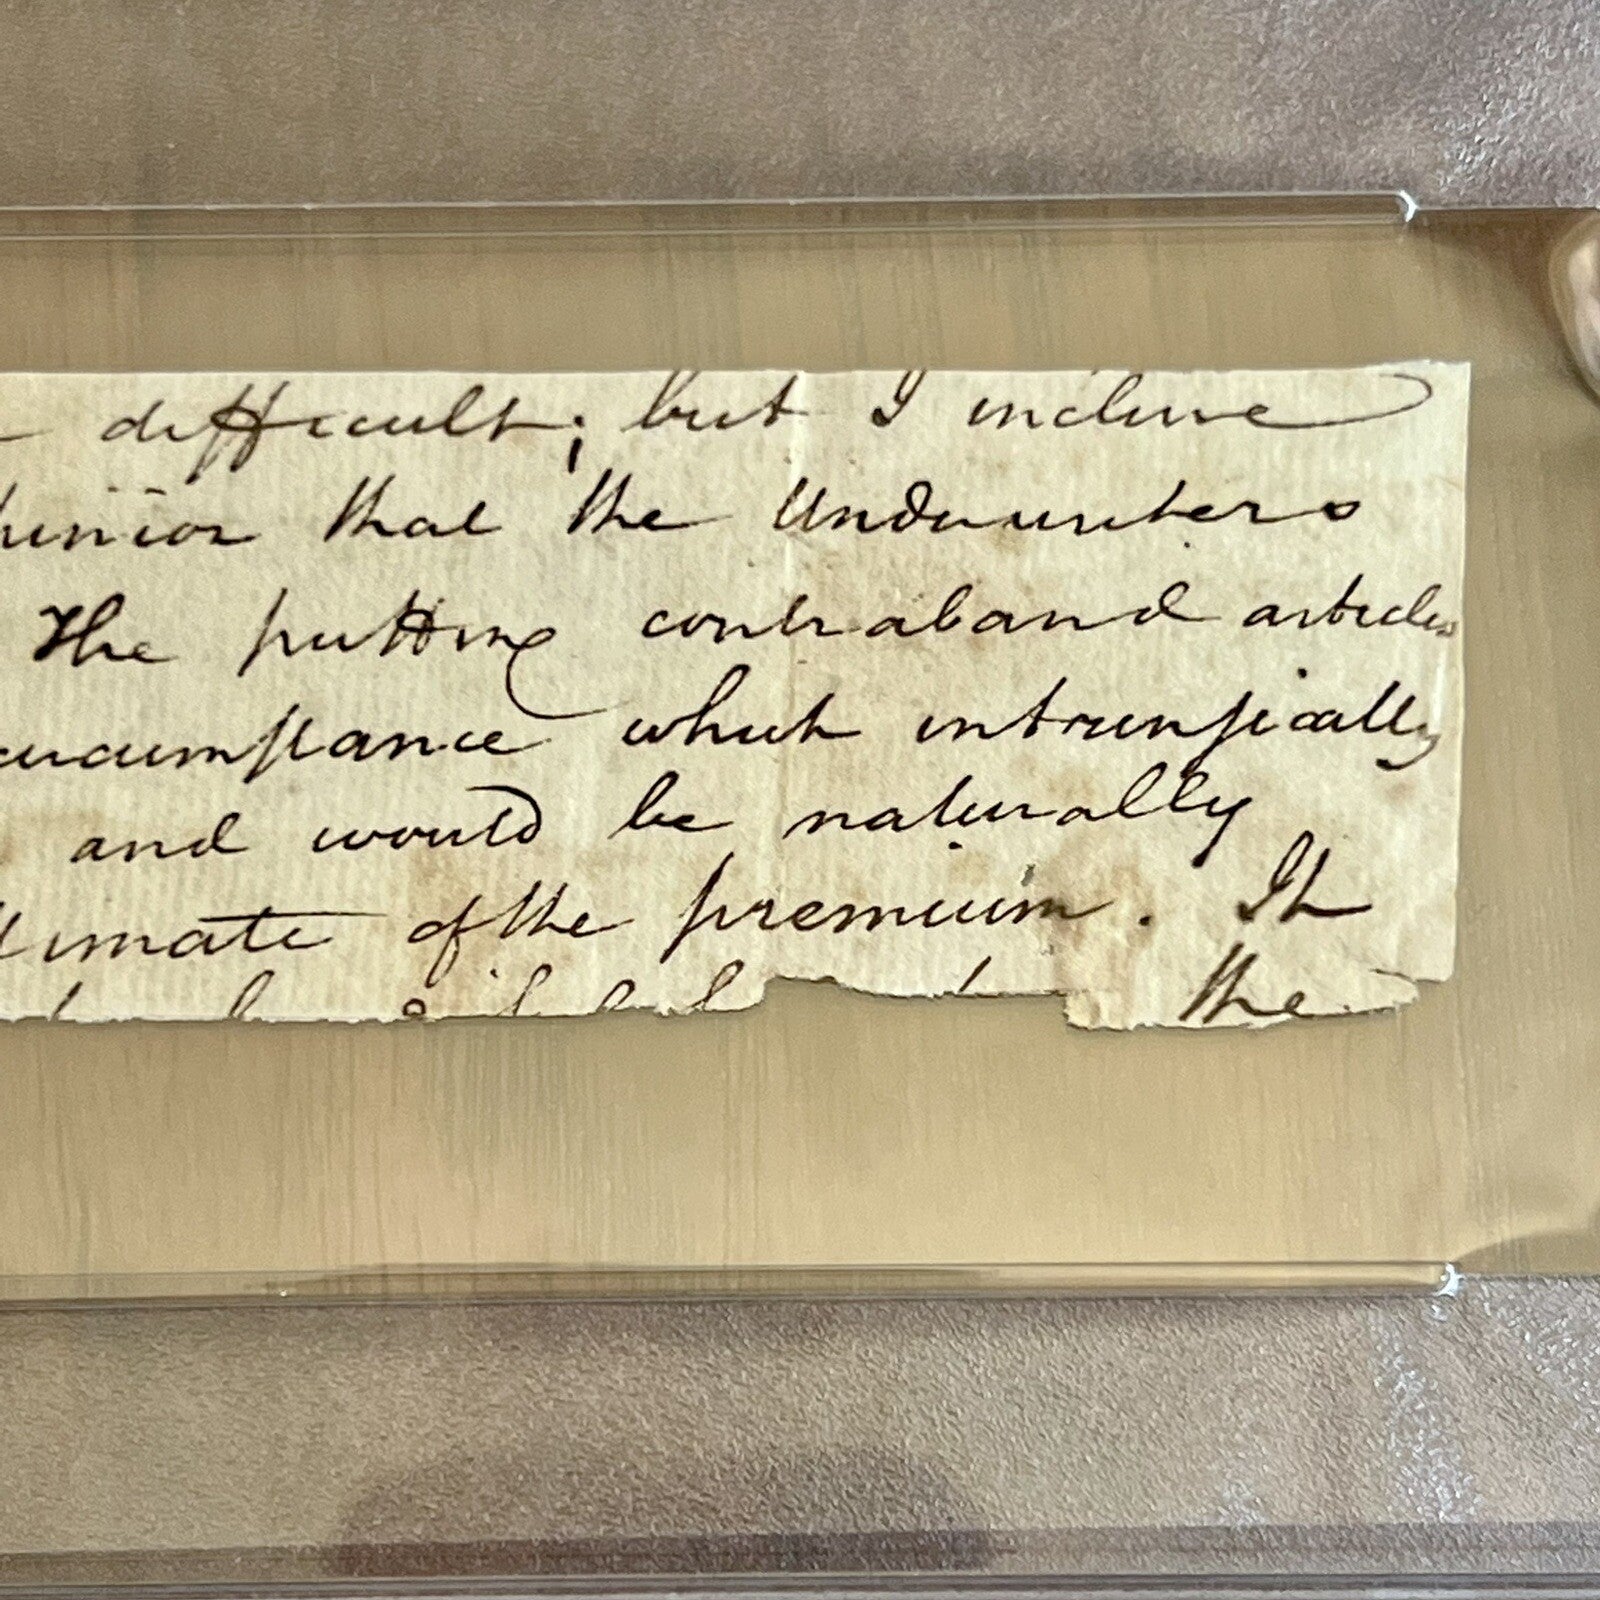 difficult; but I incline
that the Underwriters
The putting contraband articles
circumstance which intrinsically
and would be naturally
of the premium. It
the